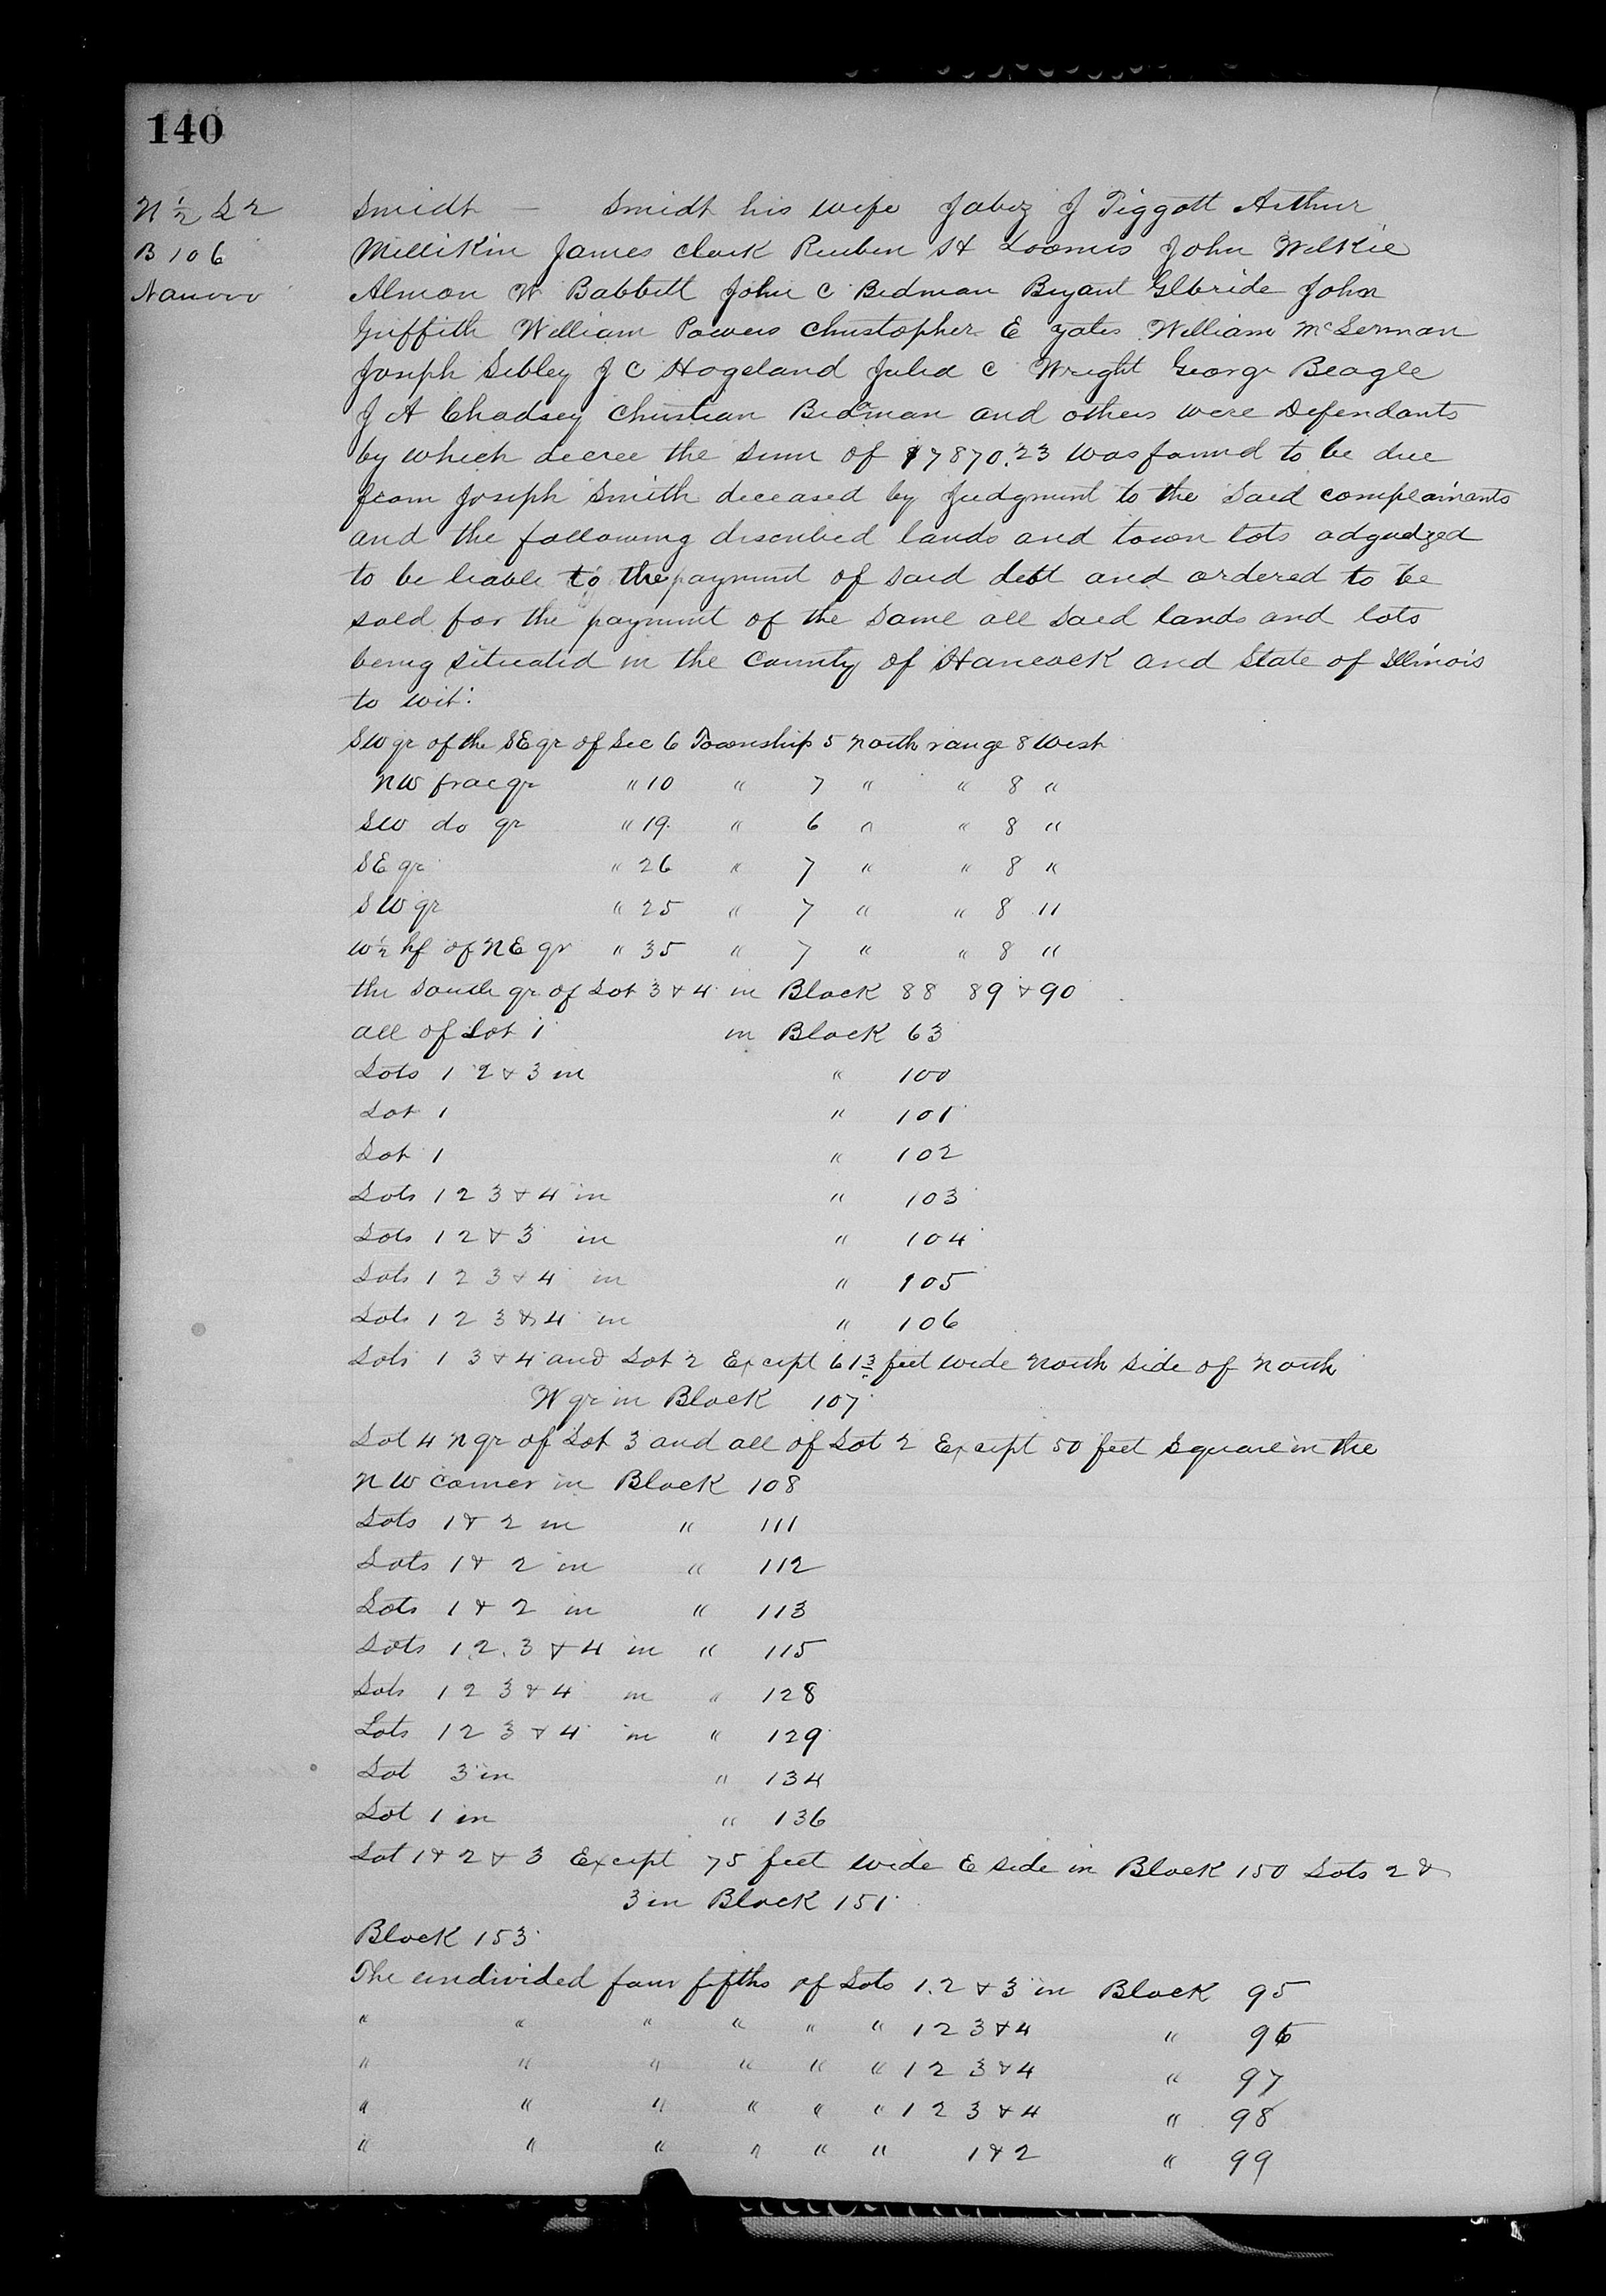 140
N 1/2 L 2
B 106
Nauvoo
Smidt — Smidt his wife Jabez J Piggott Arthur
Millikin James Clark Reuben H Loomis John Wilkie
Almon W Babbitt John C Bidman Bryant Glbride John
Griffith William Powers Christopher E Yates William McLerman
Joseph Sibley J C Hogeland Julia C Wright George Beagle
J A Chadsey Christian Bidman and others were Defendants
by which decree the sum of $7870.23 was found to be due
from Joseph Smith deceased by Judgment to the said complainants
and the following discribed lands and town lots adgudged
to be liable to the payment of said debt and ordered to be
sold for the payment of the same all said lands and lots
being situated in the County of Hancock and State of Illinois
to wit:
SW qr of the SE qr of Sec 6 Township 5 north range 8 West
NW frac qr " 10 " 7 " " 8 "
SW do qr " 19 " 6 " " 8 "
SE qr " 26 " 7 " " 8 "
SW qr " 25 " 7 " " 8 "
W 1/2 hf of NE qr " 35 " 7 " " 8 "
the South qr of Lot 3 & 4 in Block 88 89 & 90
all of Lot 1 in Block 63
Lots 1 2 & 3 in " 100
Lot 1 " 101
Lot 1 " 102
Lots 1 2 3 & 4 in " 103
Lots 1 2 & 3 in " 104
Lots 1 2 3 & 4 in " 105
Lots 1 2 3 & 4 in " 106
Lots 1 3 & 4 and Lot 2 Except 61 feet wide North side of North
W qr in Block 107
Lot 4 N qr of Lot 3 and all of Lot 2 Except 50 feet Square in the
NW corner in Block 108
Lots 1 & 2 in " 111
Lots 1 & 2 in " 112
Lots 1 & 2 in " 113
Lots 1.2.3 & 4 in " 115
Lots 1 2 3 & 4 in " 128
Lots 1 2 3 & 4 in " 129
Lot 3 in " 134
Lot 1 in " 136
Lot 1 & 2 & 3 Except 75 feet wide E side in Block 150 Lots 2 &
3 in Block 151
Block 153
The undivided four fifths of Lots 1.2 & 3 in Block 95
" " " " " " 1 2 3 & 4 " 96
" " " " " " 1 2 3 & 4 " 97
" " " " " " 1 2 3 & 4 " 98
" " " " " " 1 & 2 " 99